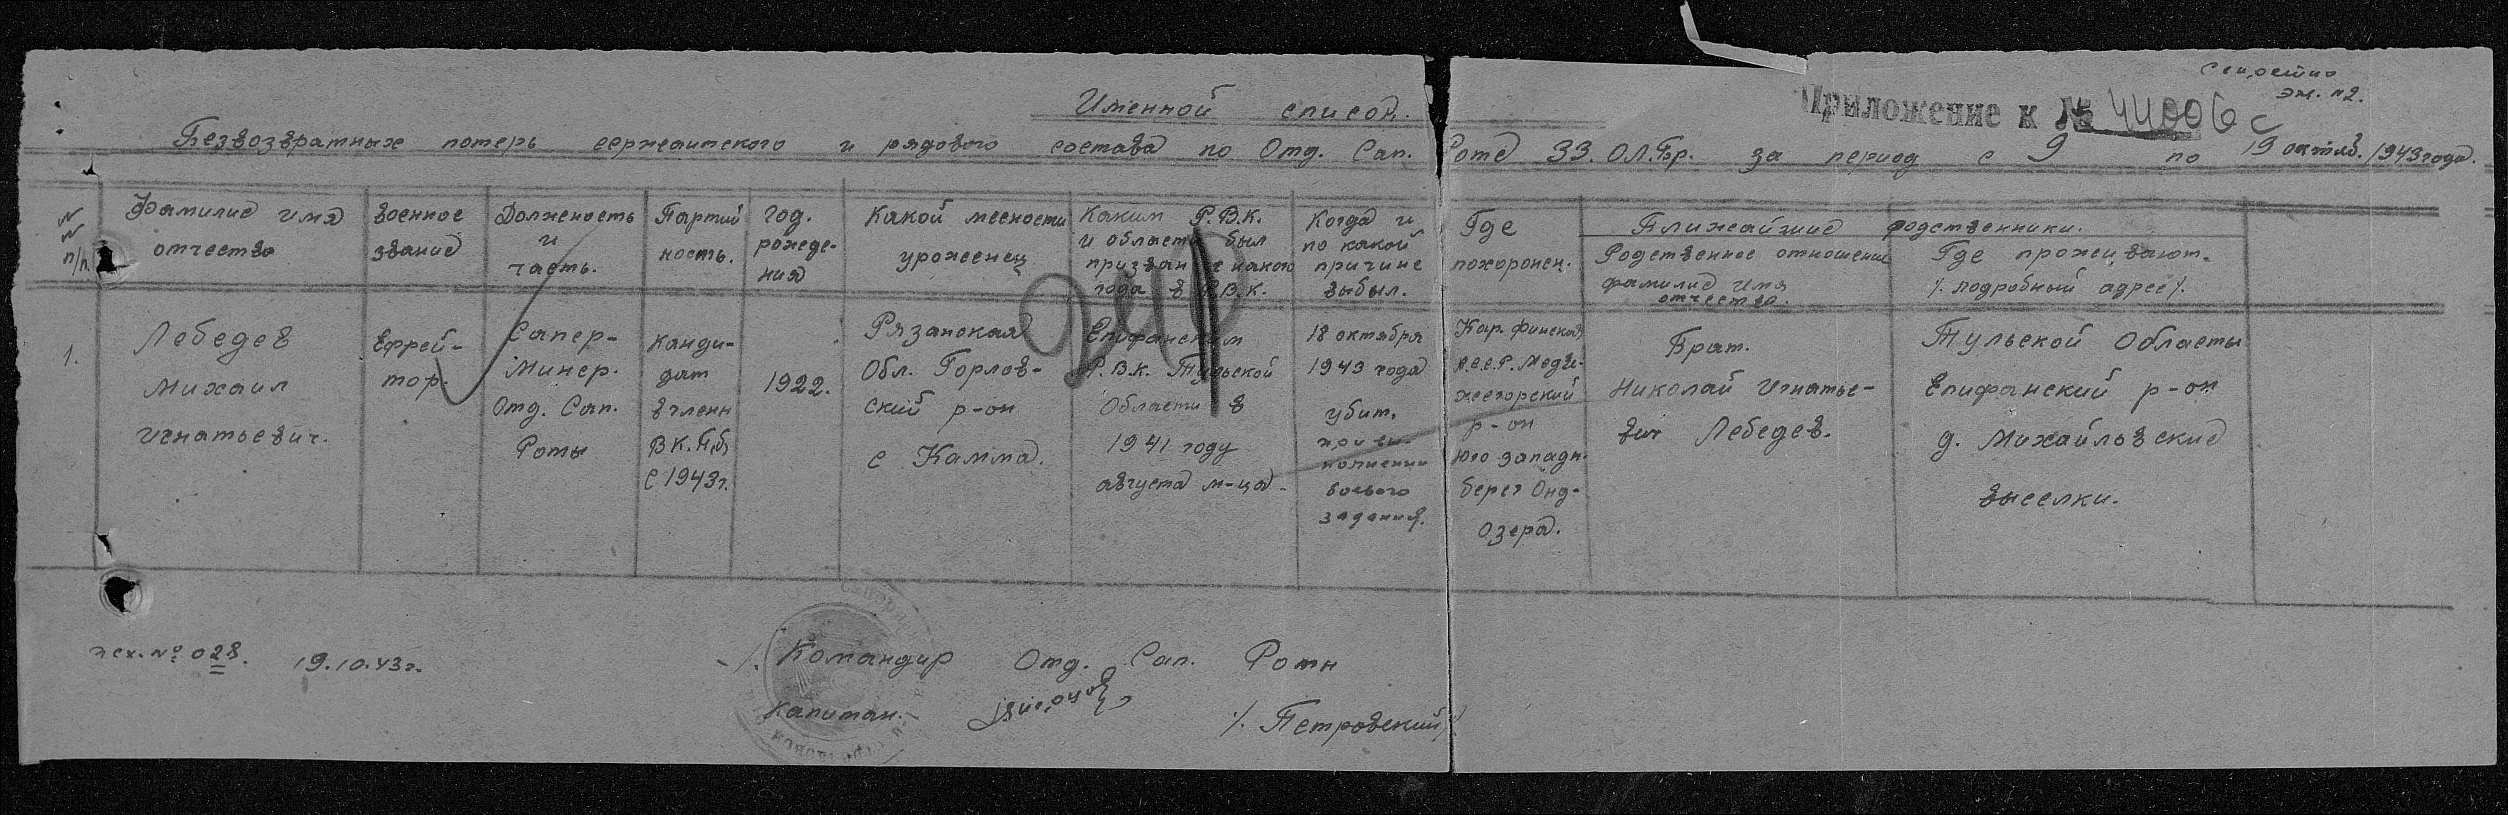 Секретно
экз. №2.
Приложение к № 44006 с
Именной список.
Безвозвратных потерь сержантского и рядового состава по Отд. Сап. Роте 33. О.Л.Бр. за период с 9 по 19 октяб. 1943 года.
№№ п/п.
Фамилие имя
отчество
военное
звание
Должность
и
часть.
Партий
ность.
год.
рожде-
ния
Какой месности
уроженец
Каким Р.В.К.
и области был
призван с какого
года в Р.В.К.
Когда и
по какой
причине
выбыл.
Где
похоронен.
Ближайшие родственники.
Родственное отношение
фамилие имя
отчество.
Где проживают.
/. подробный адрес /.
1.
Лебедев
Михаил
Игнатьевич.
Ефрей-
тор.
Сапер-
Минер.
Отд. Сап.
Роты
Канди-
дат
в члены
ВК.П.б
с 1943 г.
1922.
Рязанская
Обл. Горлов-
ский р-он
с Камма.
Епифанским
Р.В.К. Тульской
Области в
1941 году
августа м-ца.
18 октября
1943 года
убит.
при вы-
полнении
боевого
задания.
Кар. финская
с.с.с.Р. Медве-
жегорский
р-он
юго западн.
берег Онд-
Озера.
Брат.
Николай Игнатье-
вич Лебедев.
Тульской Области
Епифанский р-он
д. Михайловские
выселки.
исх. № 028. 19.10.43 г.
/. Командир Отд. Сап. Роты
Капитан.
/. Петровский /.